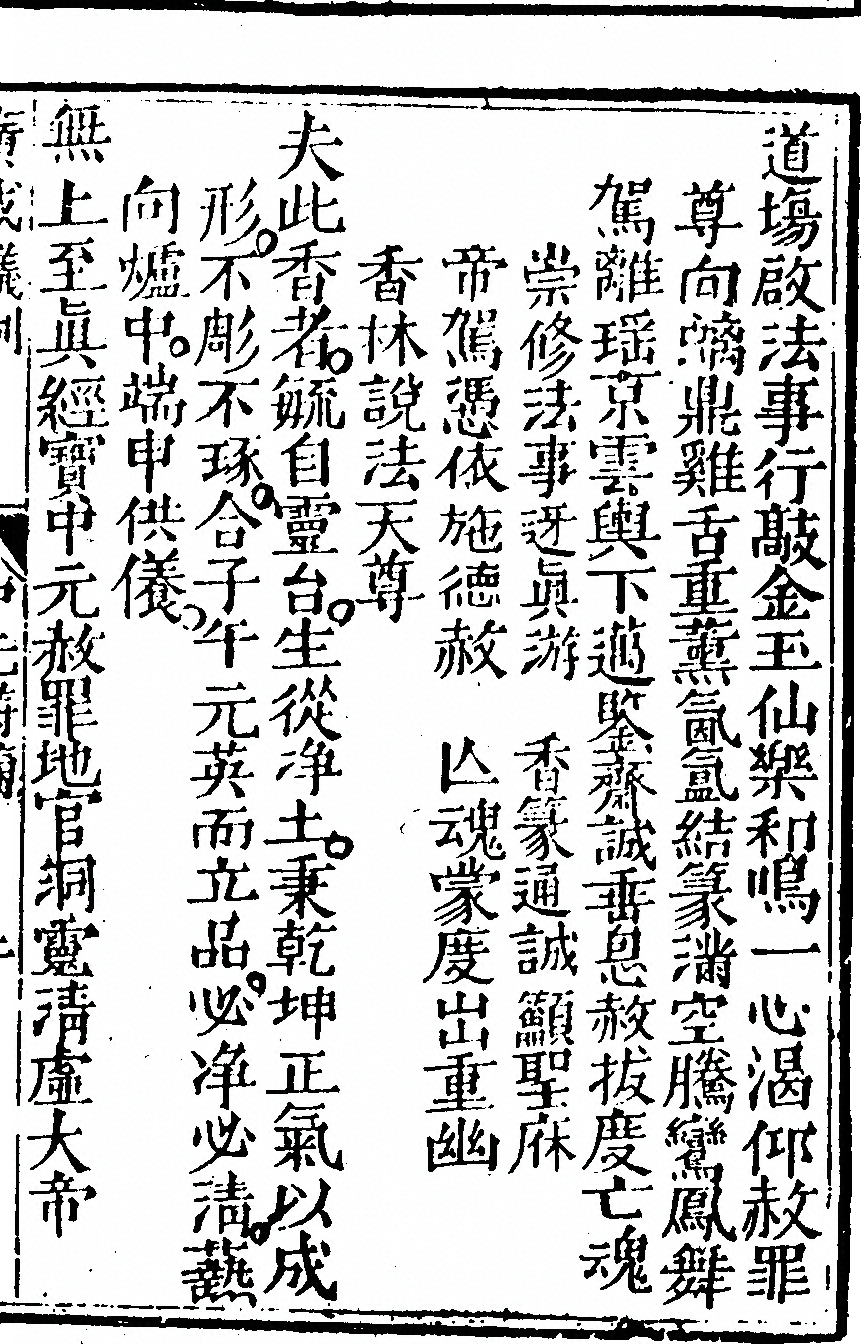 道塲啟法事行敲金玉仙樂和鳴一心渴仰赦罪
尊向螭鼎雞舌重薰氤氳結篆滿空騰鸞鳳舞
駕離瑶京雲輿下邁鑒齋誠垂恩赦拔度亡魂
崇修法事迓眞游　香篆通誠籲聖庥
帝駕憑依施德赦　亾魂蒙度出重幽
香林說法天尊
夫此香者。毓自靈台。生從净土。秉乾坤正氣以成
形。不彫不琢。合子午元英而立品。必净必清。爇
向爐中。端申供儀。
無上至眞經寶中元赦罪地官洞靈清虛大帝
廣成儀制